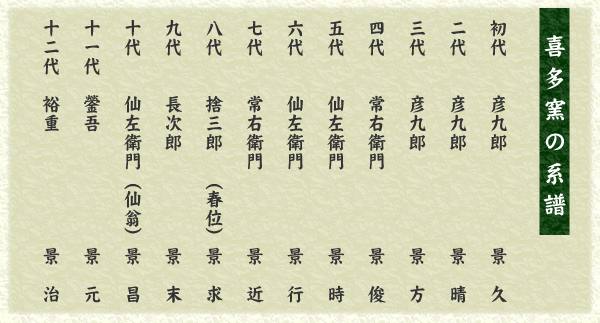 喜多窯の系譜
初代 彦九郎 景久
二代 彦九郎 景晴
三代 彦九郎 景方
四代 常右衛門 景俊
五代 仙左衛門 景時
六代 仙左衛門 景行
七代 常右衛門 景近
八代 捨三郎(春位) 景求
九代 長次郎 景末
十代 仙左衛門(仙翁) 景昌
十一代 鎣吾 景元
十二代 裕重 景治